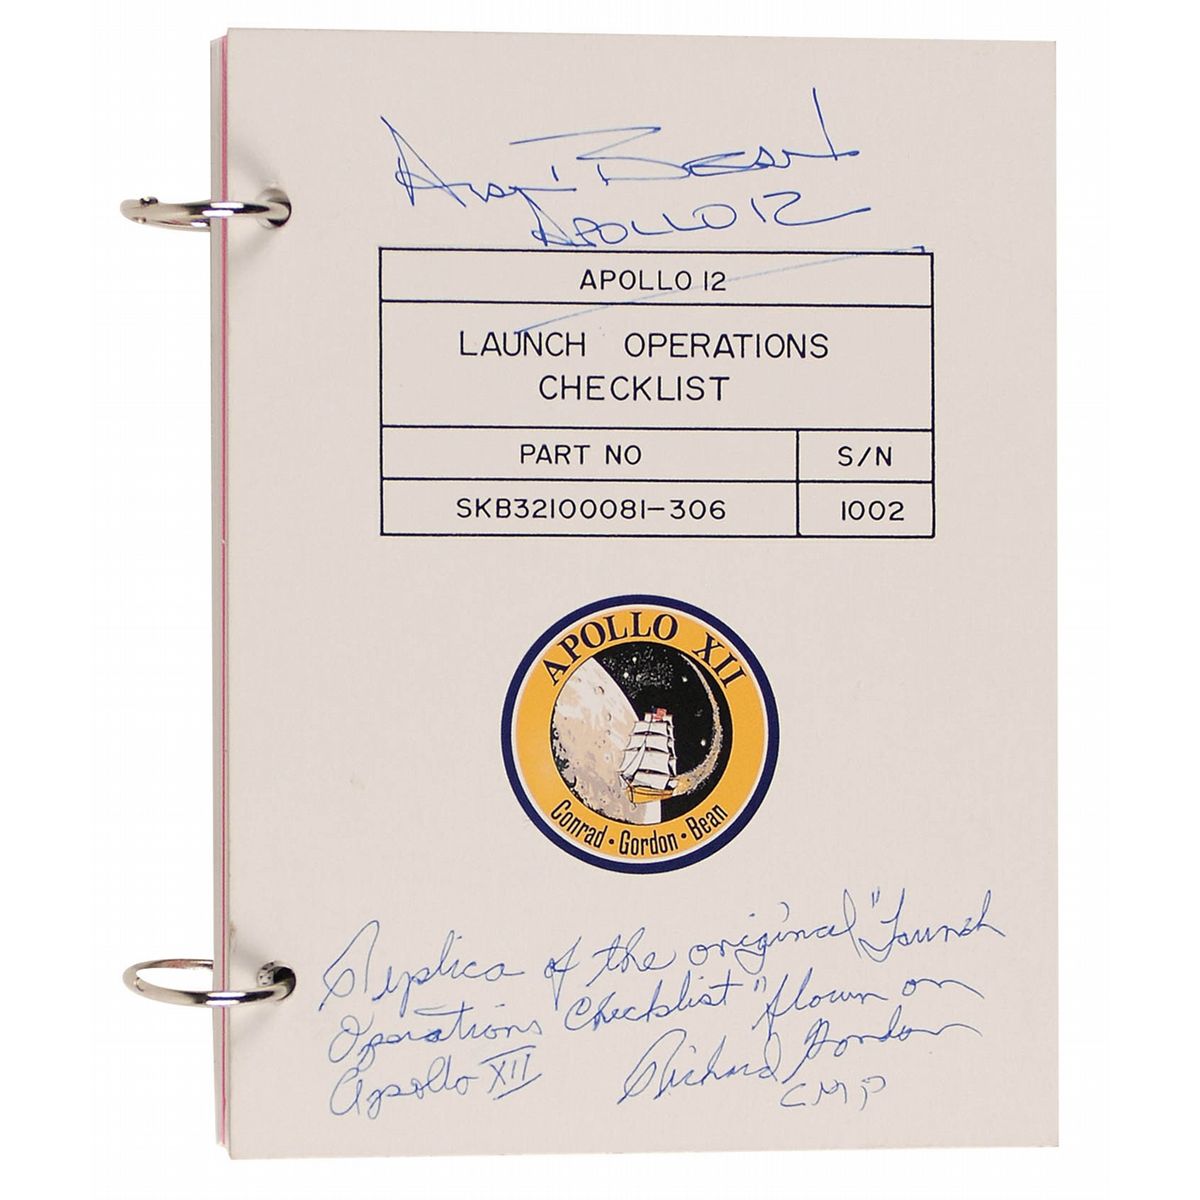 Alan Bean
APOLLO 12
APOLLO 12
LAUNCH OPERATIONS
CHECKLIST
PART NO
S/N
SKB32100081-306
1002
APOLLO XII
Conrad • Gordon • Bean
Replica of the original "Launch
Operations Checklist" flown on
Apollo XII
Richard Gordon
CMP